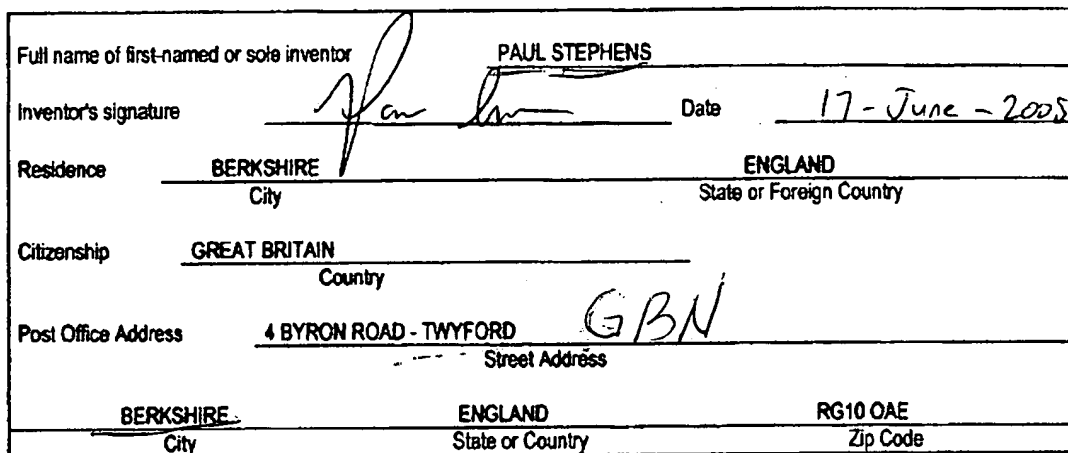 Full name of first-named or sole inventor PAUL STEPHENS
Inventor's signature Date 17-June-2005
Residence BERKSHIRE ENGLAND
City State or Foreign Country
Citizenship GREAT BRITAIN
Country
Post Office Address 4 BYRON ROAD - TWYFORD GBN
Street Address
BERKSHIRE ENGLAND RG10 OAE
City State or Country Zip Code